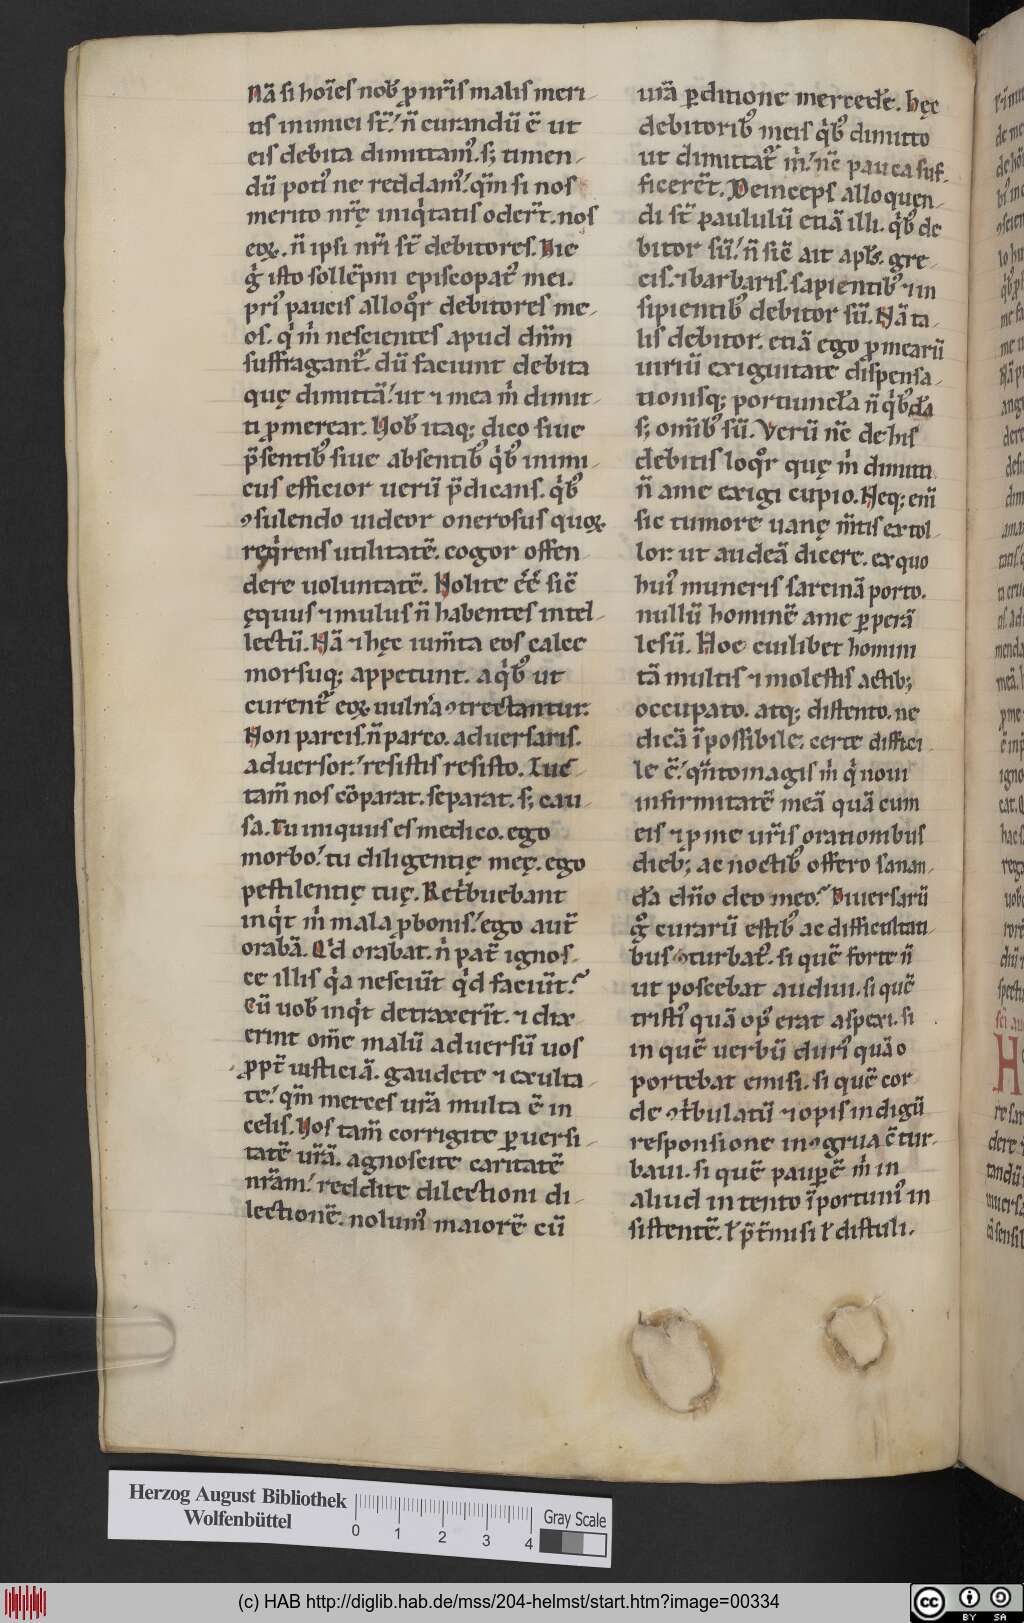 Nā si hoīes nob̄ ꝓ nr̄is malis meri-
tis inimici st̄. n̄ curandū ē ut
eis debita dimittamꝰ. sꝫ timen-
dū potiꝰ ne reddamꝰ. qm̄ si nos
merito nr̄ę iniqͥtatis oder̄t. nos
eoꝝ. n̄ ipsi nr̄i st̄ debitores. Hic
gͥ isto sollēpni episcopatꝰ mei.
priꝰ paucis alloqͦr debitores me-
os. qͥ mͥ nescientes apud dn̄m
suffragant᷑. dū faciunt debita
quę dimittā. ut ⁊ mea mͥ dimit-
ti ꝓmerear. Nob̄ itaqꝫ dico siue
p̄sentibꝰ siue absentibꝰ qͥbꝰ inimi-
cus efficior uerū p̄dicans. qͥbꝰ
ꝯsulendo uideor onerosus quoꝝ
reqͥrens utilitatē. cogor offen
dere uoluntatē. Nolite eē sic̄
ęquus ⁊ mulus n̄ habentes intel-
lectū. Nā ⁊ hęc ium̄ta eos calce
morsuqꝫ appetunt. a qͥbꝰ ut
curent᷑ eoꝝ uuln̄a ꝯtrectantur.
Non parcis. n̄ parco. aduersaris.
aduersor. resistis resisto. Luc-
tam̄ nos cōparat. separat. sꝫ cau-
sa. Tu iniquus es medico. ego
morbo. tu diligentię meę. ego
pestilentię tuę. Ret̄buebant
inqͥt mͥ mala ꝓ bonis. ego aut̄
orabā. Qͥd orabat. nͥ pat̄ ignos-
ce illis qͥa nesciūt qͥd faciūt.
Cū uob̄ inqͥt detraxer̄it. ⁊ dix
erint om̄e malū aduersū uos
ꝓpt̄ iusticiā. gaudete ⁊ exulta-
te. qm̄ merces ur̄a multa ē in
celis. Nos tam̄ corrigite ꝑuersi-
tatē ur̄ā. agnoscite caritatē
nr̄am. reddite dilectioni di-
lectionē. nolumꝰ maiorē cū
ur̄ā ꝑditione mercedē. Hęc
debitoribꝰ meis qͥbꝰ dimitto
ut dimittat᷑ mͥ. nc̄ pauca suf-
ficerēt. Deinceps alloquen-
di st̄ paululū etiā illi. qͥbꝰ de
bitor sū. n̄ sic̄ ait apl̄s. gre-
cis. ⁊ barbaris. sapientibꝰ ⁊ in
sipientibꝰ debitor sū. Nā ta-
lis debitor. etiā ego ꝓ mearū
uiriū exiguitate dispensa-
tionisqꝫ portiuncl̄a n̄ qͥbꝰdā
sꝫ omībꝰ sū. Verū nc̄ de his
debitis loqͦr quę mͥ dimitti
n̄ a me exigi cupio. Neqꝫ eni̅
sic tumore uanę m̄tis extol-
lor. ut audeā dicere. ex quo
huiꝰ muneris sarcinā porto.
nullū hominē a me ꝑperā
lesū. Hoc cuilibet homini
tā multis ⁊ molestis actibꝫ
occupato. atqꝫ distento. ne
dicā īpossibile. certe diffici-
le ē. qn̄to magis mͥ qͥ noui
infirmitatē meā quā cum
eis ⁊ ꝓ me ur̄is orationibus
diebꝫ ac noctibꝰ offero sanan-
dā dn̄o deo meo. Diuersarū
gͦ curarū estibꝰ ac difficultati
bus ꝯturbatꝰ. si quē forte n̄
ut poscebat audiui. si quē
tristiꝰ quā opꝰ erat aspexi. si
in quē uerbū duriꝰ quā o
portebat emisi. si quē cor
de ꝯt̄bulatū ⁊ opis indigū
responsione incongrua ꝯtur-
baui. si quē pauꝑē mͥ in
aliud intento īportuniꝰ in
sistentē. ł p̄t̄misi ł distuli.
Herzog August Bibliothek
Wolfenbüttel
0 1 2 3 4
Gray Scale
(c) HAB http://diglib.hab.de/mss/204-helmst/start.htm?image=00334
cc BY SA